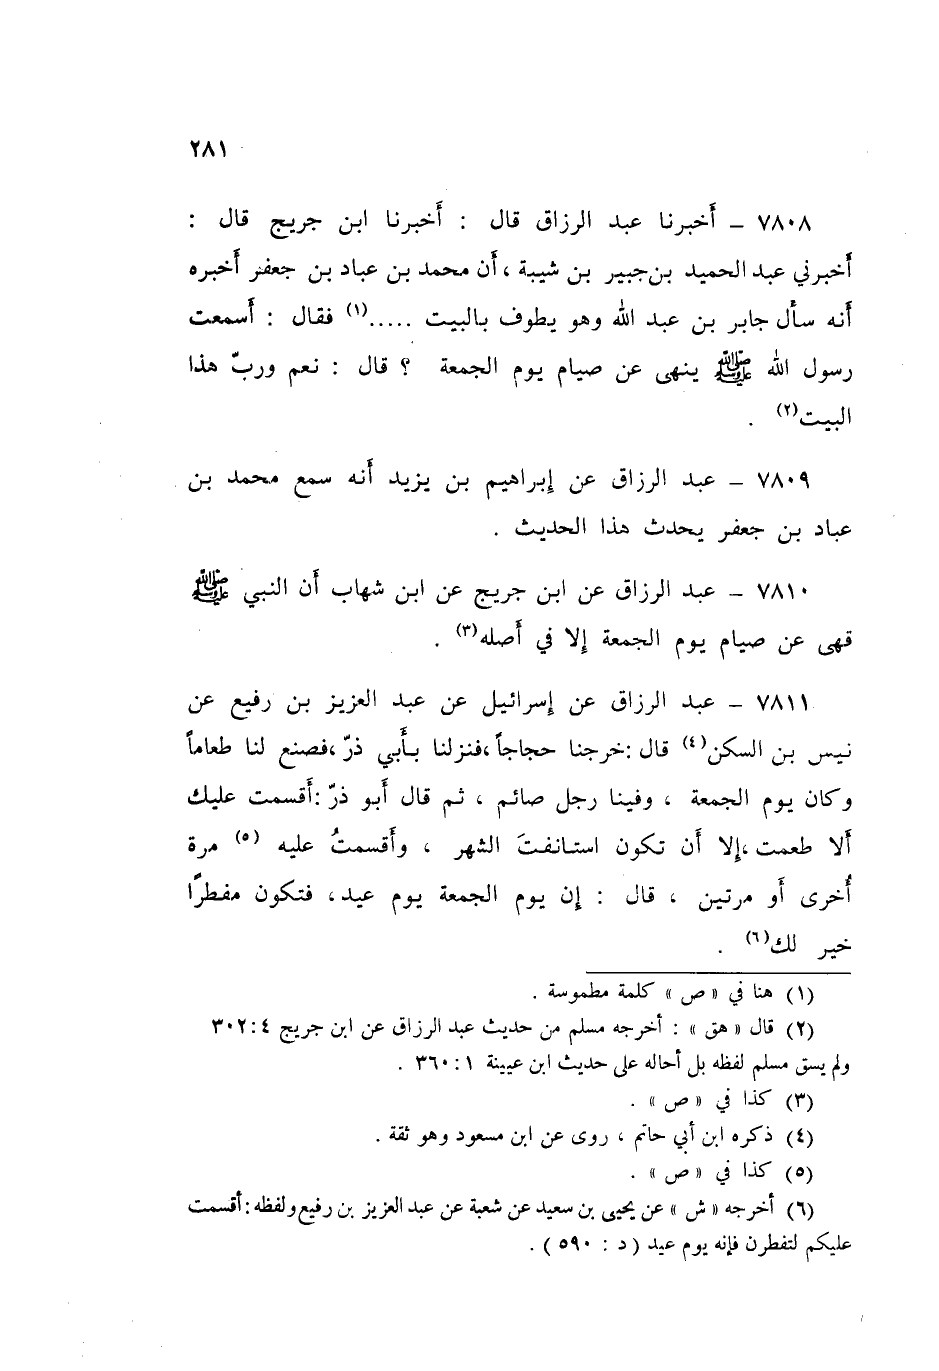 ٢٨١
٧٨٠٨ – أَخبرنا عبد الرزاق قال : أَخبرنا ابن جريج قال :
أَخبرني عبد الحميد بن جبير بن شيبة ، أَن محمد بن عباد بن جعفر أَخبره
أَنه سأَل جابر بن عبد الله وهو يطوف بالبيت .....(١) فقال : أَسمعت
رسول الله ﷺ ينهى عن صيام يوم الجمعة ؟ قال : نعم وربّ هذا
البيت(٢) .
٧٨٠٩ – عبد الرزاق عن إبراهيم بن يزيد أَنه سمع محمد بن
عباد بن جعفر يحدث هذا الحديث .
٧٨١٠ – عبد الرزاق عن ابن جريج عن ابن شهاب أَن النبي ﷺ
قهى عن صيام يوم الجمعة إلا في أَصله(٣) .
٧٨١١ – عبد الرزاق عن إسرائيل عن عبد العزيز بن رفيع عن
نيس بن السكن(٤) قال : خرجنا حجاجاً ، فنزلنا بأَبي ذرّ ، فصنع لنا طعاماً
وكان يوم الجمعة ، وفينا رجل صائم ، ثم قال أَبو ذرّ : أَقسمت عليك
أَلا طعمت ، إلا أَن تكون استانفتَ الشهر ، وأَقسمتُ عليه (٥) مرة
أُخرى أَو مرتين ، قال : إن يوم الجمعة يوم عيد ، فتكون مفطرًا
خير لك(٦) .
(١) هنا في « ص » كلمة مطموسة .
(٢) قال « هق » : أخرجه مسلم من حديث عبد الرزاق عن ابن جريج ٤ : ٣٠٢
ولم يسق مسلم لفظه بل أحاله على حديث ابن عيينة ١ : ٣٦٠ .
(٣) كذا في « ص » .
(٤) ذكره ابن أبي حاتم ، روى عن ابن مسعود وهو ثقة .
(٥) كذا في « ص » .
(٦) أخرجه « ش » عن يحيى بن سعيد عن شعبة عن عبد العزيز بن رفيع ولفظه : أقسمت
عليكم لتفطرن فإنه يوم عيد ( د : ٥٩٠ ) .